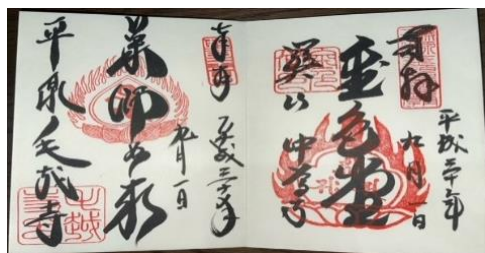 奉拝
平成三十年
九月一日
金色堂
関山 中尊寺
奉拝 平成三十年
九月一日
薬師如来
平泉毛越寺